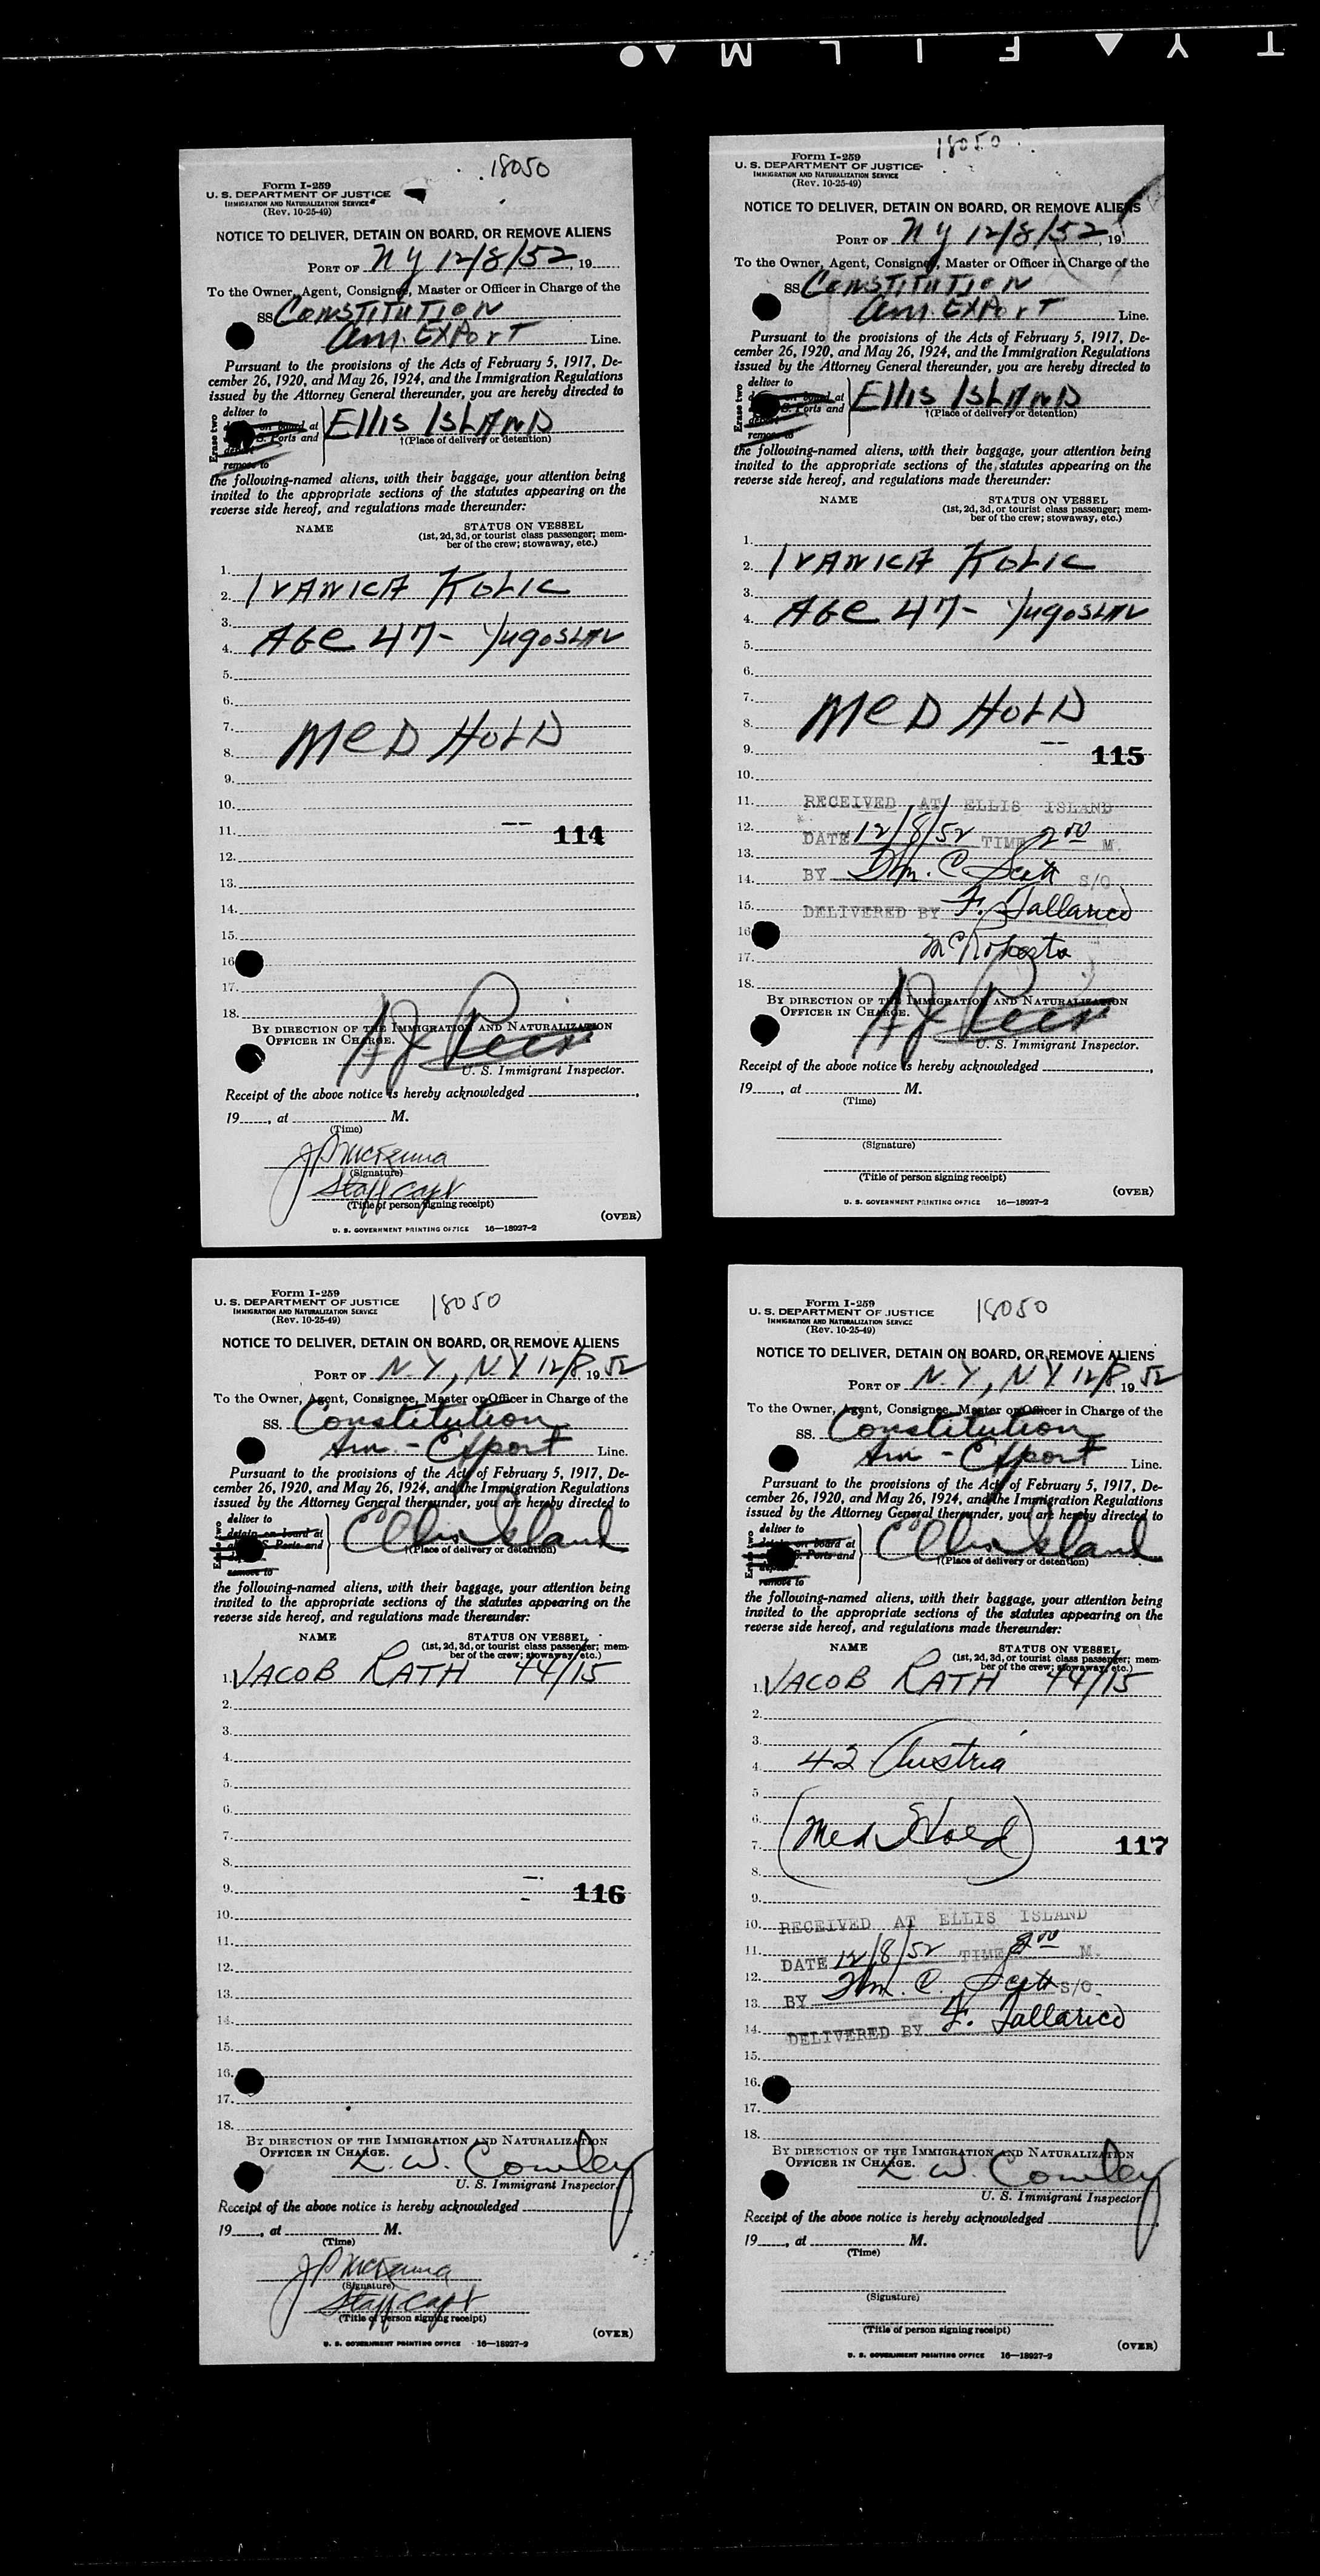 T Y F I L M
18050
Form I-259
U. S. DEPARTMENT OF JUSTICE
IMMIGRATION AND NATURALIZATION SERVICE
(Rev. 10-25-49)
NOTICE TO DELIVER, DETAIN ON BOARD, OR REMOVE ALIENS
PORT OF NY 12/8/52, 19
To the Owner, Agent, Consignee, Master or Officer in Charge of the
SS CONSTITUTION
Am. EXPORT Line.
Pursuant to the provisions of the Acts of February 5, 1917, De-
cember 26, 1920, and May 26, 1924, and the Immigration Regulations
issued by the Attorney General thereunder, you are hereby directed to
Erase two
deliver to
on board at
S. Ports and
depart
remove to
ELLIS ISLAND
†(Place of delivery or detention)
the following-named aliens, with their baggage, your attention being
invited to the appropriate sections of the statutes appearing on the
reverse side hereof, and regulations made thereunder:
NAME STATUS ON VESSEL
(1st, 2d, 3d, or tourist class passenger; mem-
ber of the crew; stowaway, etc.)
1.
2. IVANICA KOLIC
3.
4. AGE 47- Yugoslav
5.
6.
7.
8. MED HOLD
9.
10.
11. 114
12.
13.
14.
15.
16
17.
18.
BY DIRECTION OF THE IMMIGRATION AND NATURALIZATION
OFFICER IN CHARGE.
U. S. Immigrant Inspector.
Receipt of the above notice is hereby acknowledged
19, at M.
(Time)
J P McKenna
(Signature)
Staff Capt
(Title of person signing receipt)
(OVER)
U. S. GOVERNMENT PRINTING OFFICE 16—18927-2
18050
Form I-259
U. S. DEPARTMENT OF JUSTICE
IMMIGRATION AND NATURALIZATION SERVICE
(Rev. 10-25-49)
NOTICE TO DELIVER, DETAIN ON BOARD, OR REMOVE ALIENS
PORT OF NY 12/8/52, 19
To the Owner, Agent, Consignee, Master or Officer in Charge of the
SS CONSTITUTION
Am. EXPORT Line.
Pursuant to the provisions of the Acts of February 5, 1917, De-
cember 26, 1920, and May 26, 1924, and the Immigration Regulations
issued by the Attorney General thereunder, you are hereby directed to
Erase two
deliver to
on board at
S. Ports and
remove to
ELLIS ISLAND
†(Place of delivery or detention)
the following-named aliens, with their baggage, your attention being
invited to the appropriate sections of the statutes appearing on the
reverse side hereof, and regulations made thereunder:
NAME STATUS ON VESSEL
(1st, 2d, 3d, or tourist class passenger; mem-
ber of the crew; stowaway, etc.)
1.
2. IVANICA KOLIC
3.
4. AGE 47- Yugoslav
5.
6.
7.
8. MED HOLD
9. 115
10.
11. RECEIVED AT ELLIS ISLAND
12. DATE 12/8/52 TIME 2 00 M.
13.
14. BY Wm. C. Scott S/O
15. DELIVERED BY F. Tallarico
16
17. McRoberts
18.
BY DIRECTION OF THE IMMIGRATION AND NATURALIZATION
OFFICER IN CHARGE.
U. S. Immigrant Inspector.
Receipt of the above notice is hereby acknowledged
19, at M.
(Time)
(Signature)
(Title of person signing receipt)
(OVER)
U. S. GOVERNMENT PRINTING OFFICE 16—18927-2
Form I-259
U. S. DEPARTMENT OF JUSTICE
IMMIGRATION AND NATURALIZATION SERVICE
(Rev. 10-25-49)
18050
NOTICE TO DELIVER, DETAIN ON BOARD, OR REMOVE ALIENS
PORT OF N.Y., N.Y 12/8 1952
To the Owner, Agent, Consignee, Master or Officer in Charge of the
SS. Constitution
Am - Export Line.
Pursuant to the provisions of the Acts of February 5, 1917, De-
cember 26, 1920, and May 26, 1924, and the Immigration Regulations
issued by the Attorney General thereunder, you are hereby directed to
Erase two
deliver to
detain on board at
S. Ports and
remove to
Ellis Island
†(Place of delivery or detention)
the following-named aliens, with their baggage, your attention being
invited to the appropriate sections of the statutes appearing on the
reverse side hereof, and regulations made thereunder:
NAME STATUS ON VESSEL
(1st, 2d, 3d, or tourist class passenger; mem-
ber of the crew; stowaway, etc.)
1. JACOB RATH 44/15
2.
3.
4.
5.
6.
7.
8.
9. 116
10.
11.
12.
13.
14.
15.
16.
17.
18.
BY DIRECTION OF THE IMMIGRATION AND NATURALIZATION
OFFICER IN CHARGE.
L. W. Cowley
U. S. Immigrant Inspector.
Receipt of the above notice is hereby acknowledged
19, at M.
(Time)
J P McKenna
(Signature)
Staff Capt
(Title of person signing receipt)
(OVER)
U. S. GOVERNMENT PRINTING OFFICE 16—18927-2
Form I-259
U. S. DEPARTMENT OF JUSTICE
IMMIGRATION AND NATURALIZATION SERVICE
(Rev. 10-25-49)
18050
NOTICE TO DELIVER, DETAIN ON BOARD, OR REMOVE ALIENS
PORT OF N.Y., N.Y 12/8 1952
To the Owner, Agent, Consignee, Master or Officer in Charge of the
SS. Constitution
Am - Export Line.
Pursuant to the provisions of the Acts of February 5, 1917, De-
cember 26, 1920, and May 26, 1924, and the Immigration Regulations
issued by the Attorney General thereunder, you are hereby directed to
deliver to
detain on board at
S. Ports and
depart
remove to
Ellis Island
†(Place of delivery or detention)
the following-named aliens, with their baggage, your attention being
invited to the appropriate sections of the statutes appearing on the
reverse side hereof, and regulations made thereunder:
NAME STATUS ON VESSEL
(1st, 2d, 3d, or tourist class passenger; mem-
ber of the crew; stowaway, etc.)
1. JACOB RATH 44/15
2.
3.
4. 42 Austria
5
6.
7. (Med Hold) 117
8.
9.
10. RECEIVED AT ELLIS ISLAND
11. DATE 12/8/52 TIME 2 00 M.
12.
13. BY Wm. C. Scott S/O
14. DELIVERED BY F. Tallarico
15.
16.
17.
18.
BY DIRECTION OF THE IMMIGRATION AND NATURALIZATION
OFFICER IN CHARGE.
L. W. Cowley
U. S. Immigrant Inspector
Receipt of the above notice is hereby acknowledged
19, at M.
(Time)
(Signature)
(Title of person signing receipt)
(OVER)
U. S. GOVERNMENT PRINTING OFFICE 16—18927-2